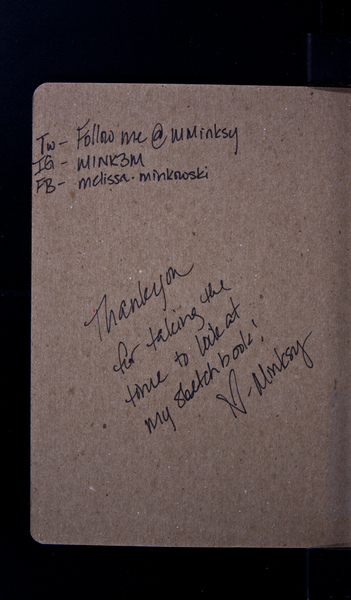 Tw- Follow me @ MMinksy
IG - MINK3M
FB- melissa.minkowski
Thankyou
for taking the
time to look at
my sketchbook!
-Minksy